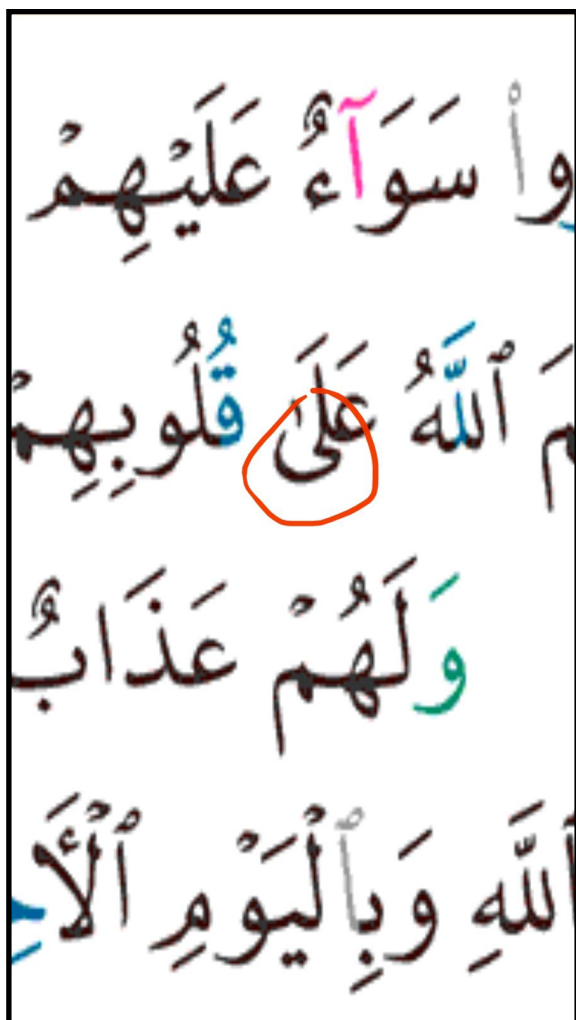 وا۟ سَوَآءٌ عَلَيْهِمْ
مَ ٱللَّهُ عَلَىٰ قُلُوبِهِمْ
وَلَهُمْ عَذَابٌ
ٱللَّهِ وَبِٱلْيَوْمِ ٱلْأَخِ